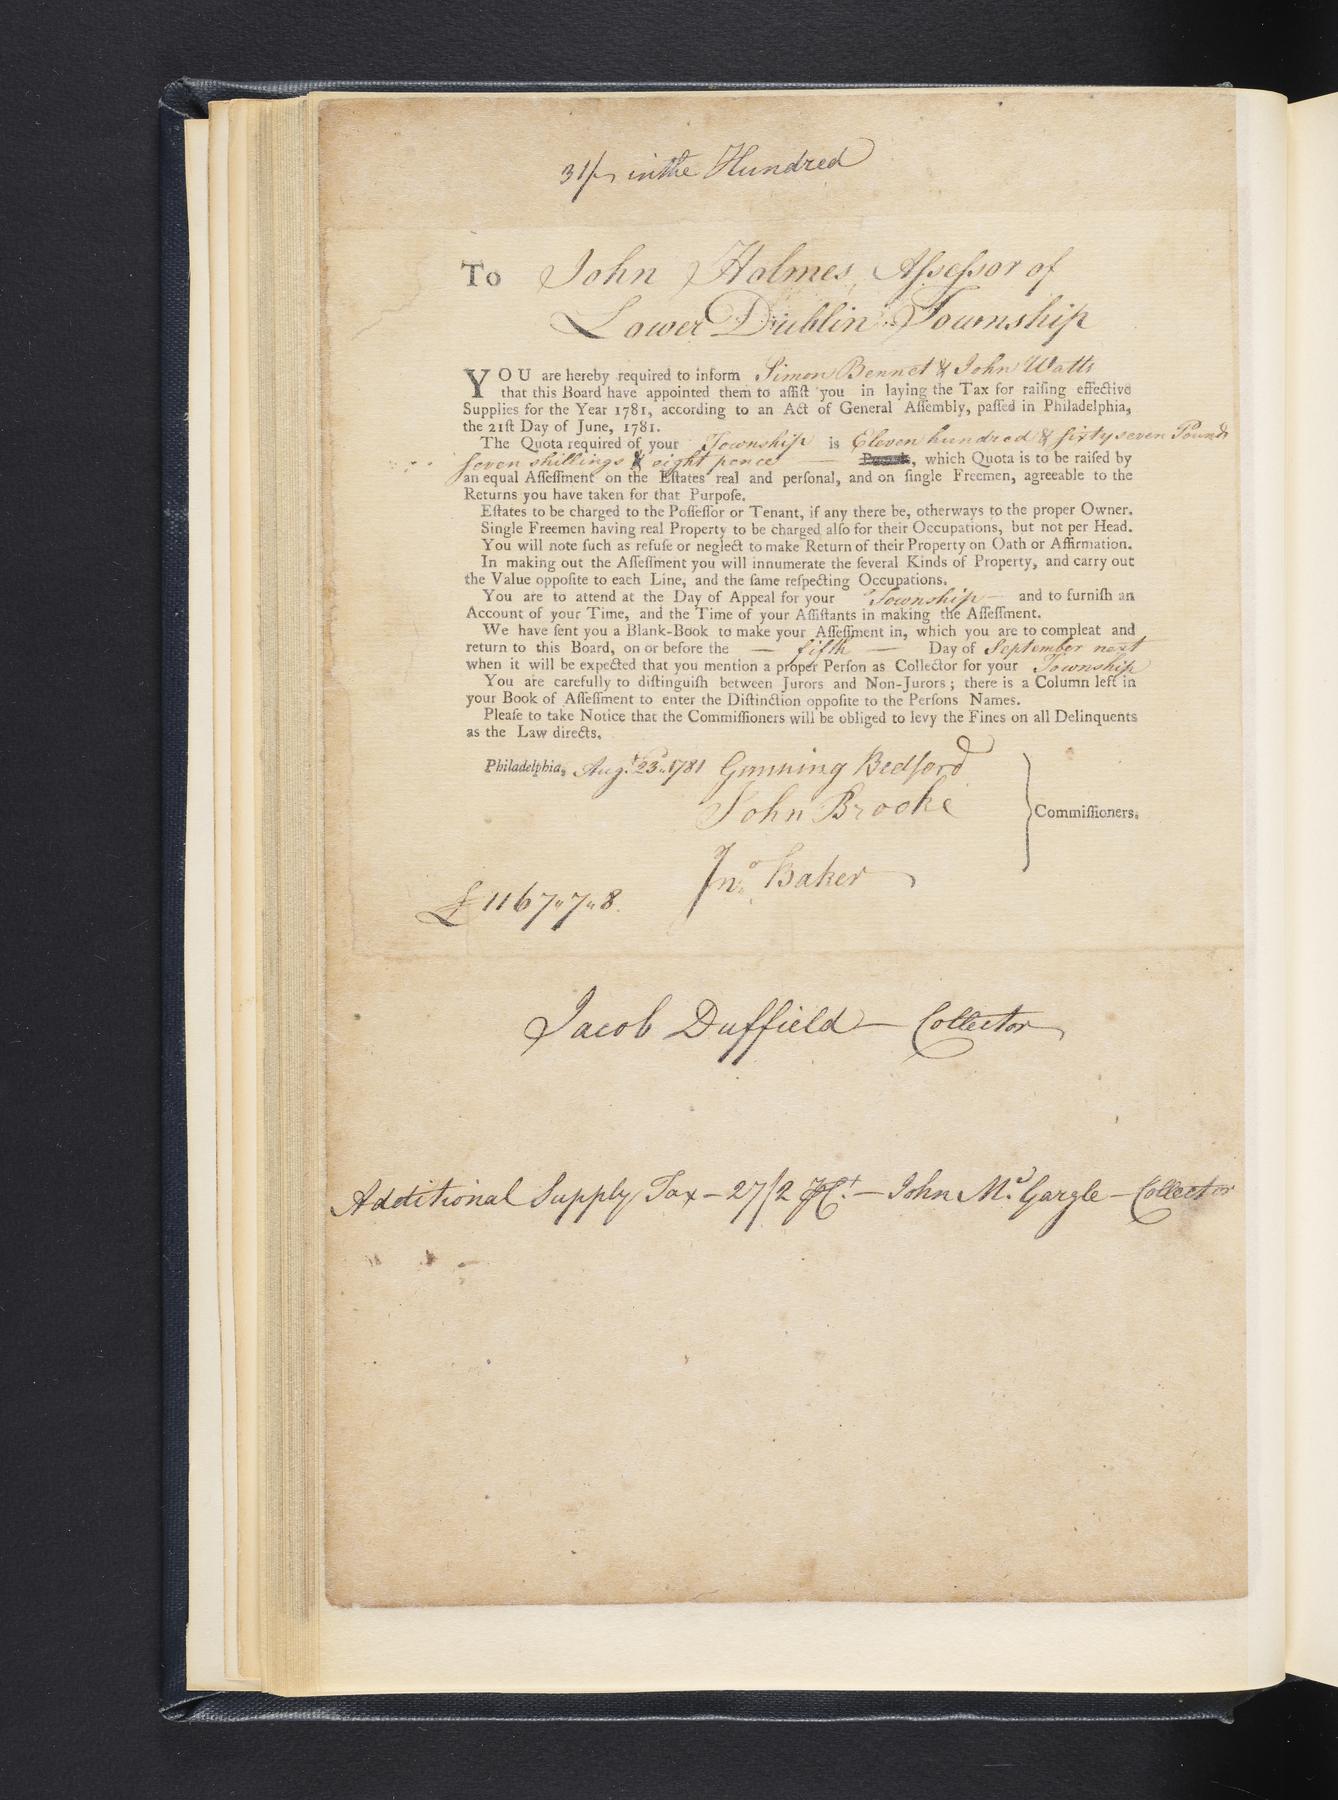 31/ in the Hundred
To John Holmes, Aſseſsor of
Lower Dublin Township
YOU are hereby required to inform Simon Bennet & John Watts
that this Board have appointed them to aſſiſt you in laying the Tax for raiſing effective
Supplies for the Year 1781, according to an Act of General Aſſembly, paſſed in Philadelphia,
the 21ſt Day of June, 1781.
The Quota required of your Township is Eleven hundred & ſixty seven Pounds
ſeven shillings & eight pence — , which Quota is to be raiſed by
an equal Aſſeſſment on the Eſtates real and perſonal, and on ſingle Freemen, agreeable to the
Returns you have taken for that Purpoſe.
Eſtates to be charged to the Poſſeſſor or Tenant, if any there be, otherways to the proper Owner.
Single Freemen having real Property to be charged alſo for their Occupations, but not per Head.
You will note ſuch as refuſe or neglect to make Return of their Property on Oath or Affirmation.
In making out the Aſſeſſment you will innumerate the ſeveral Kinds of Property, and carry out
the Value oppoſite to each Line, and the ſame reſpecting Occupations.
You are to attend at the Day of Appeal for your Township — and to furniſh an
Account of your Time, and the Time of your Aſſiſtants in making the Aſſeſſment.
We have ſent you a Blank-Book to make your Aſſeſſment in, which you are to compleat and
return to this Board, on or before the — fifth — Day of September next
when it will be expected that you mention a proper Perſon as Collector for your Township
You are carefully to diſtinguiſh between Jurors and Non-Jurors; there is a Column left in
your Book of Aſſeſſment to enter the Diſtinction oppoſite to the Perſons Names.
Pleaſe to take Notice that the Commiſſioners will be obliged to levy the Fines on all Delinquents
as the Law directs.
Philadelphia, Augt. 23d. 1781 Gunning Bedford
John Brooke
Commiſſioners.
Jno. Baker
£1167"7"8.
Jacob Duffield — Collector
Additional Supply Tax – 27/2 Ct. – John Mc.Gargle – Collector